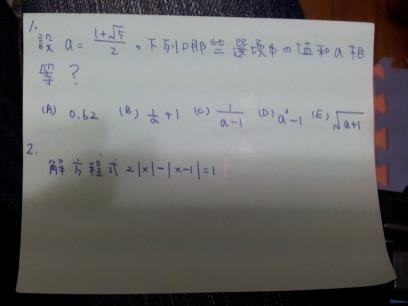 1.
設 a = \frac{1+\sqrt{5}}{2}。下列哪些選項中の值和a相
等?
(A) 0.62 (B) \frac{1}{a}+1 (C) \frac{1}{a-1} (D) a²-1 (E) \sqrt{a+1}
2.
解方程式 2|x|-|x-1|=1